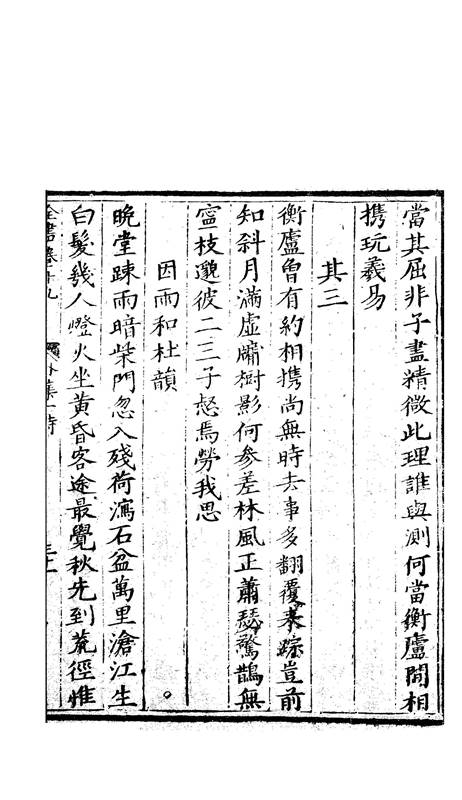 當其屈非子盡精微此理誰與測何當衡廬間相
携玩羲易
其三
衡廬曾有約相携尚無時去事多翻覆來踪豈前
知斜月滿虛牖樹影何參差林風正蕭瑟驚鵲無
寧枝邈彼二三子惄焉勞我思
因雨和杜韻
晚堂踈雨暗柴門忽入殘荷瀉石盆萬里滄江生
白髮幾人燈火坐黃昏客途最覺秋先到荒徑惟
全書卷十九 外集一 詩